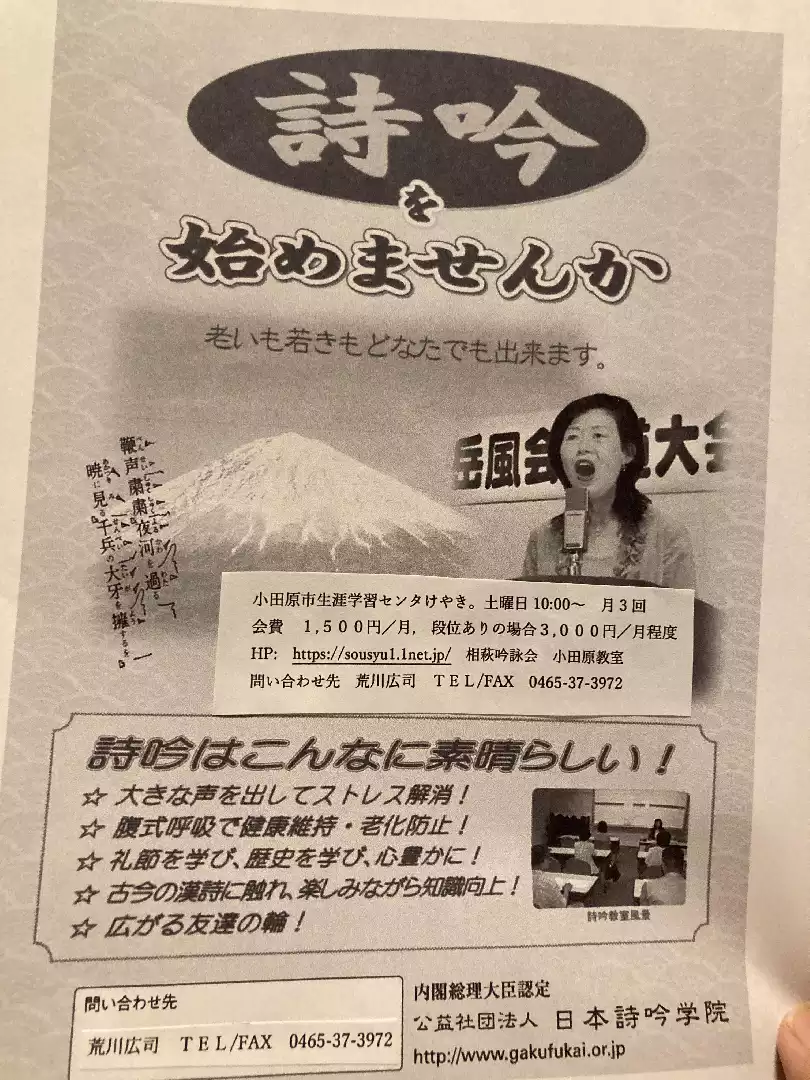 詩吟
を
始めませんか
老いも若きもどなたでも出来ます。
岳風会 道大会
鞭声粛粛夜河を過る
暁に見る千兵の大牙を擁するを
小田原市生涯学習センタけやき。土曜日10:00~ 月3回
会費 1,500円/月, 段位ありの場合3,000円/月程度
HP: https://sousyu1.1net.jp/ 相萩吟詠会 小田原教室
問い合わせ先 荒川広司 TEL/FAX 0465-37-3972
詩吟はこんなに素晴らしい!
☆ 大きな声を出してストレス解消!
☆ 腹式呼吸で健康維持・老化防止!
☆ 礼節を学び、歴史を学び、心豊かに!
☆ 古今の漢詩に触れ、楽しみながら知識向上!
☆ 広がる友達の輪!
詩吟教室風景
問い合わせ先
荒川広司 TEL/FAX 0465-37-3972
内閣総理大臣認定
公益社団法人 日本詩吟学院
http://www.gakufukai.or.jp